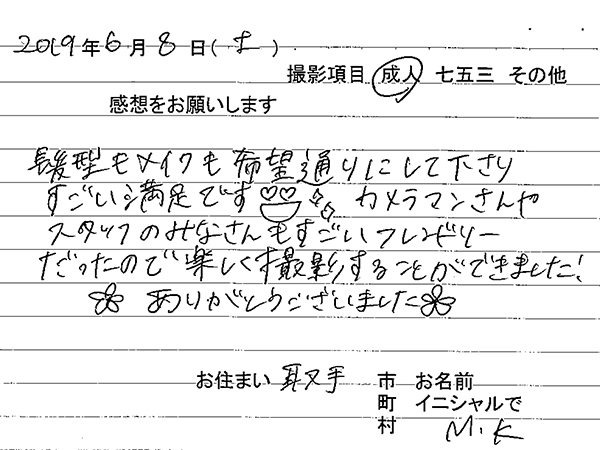 2019年6月8日(土)
撮影項目 成人 七五三 その他
感想をお願いします
髪型もメイクも希望通りにして下さり
すごい満足です カメラマンさんや
スタッフのみなさんもすごいフレンドリー
だったので楽しく撮影することができました!
ありがとうございました
お住まい 取手 市 お名前
町 イニシャルで
村 M.K